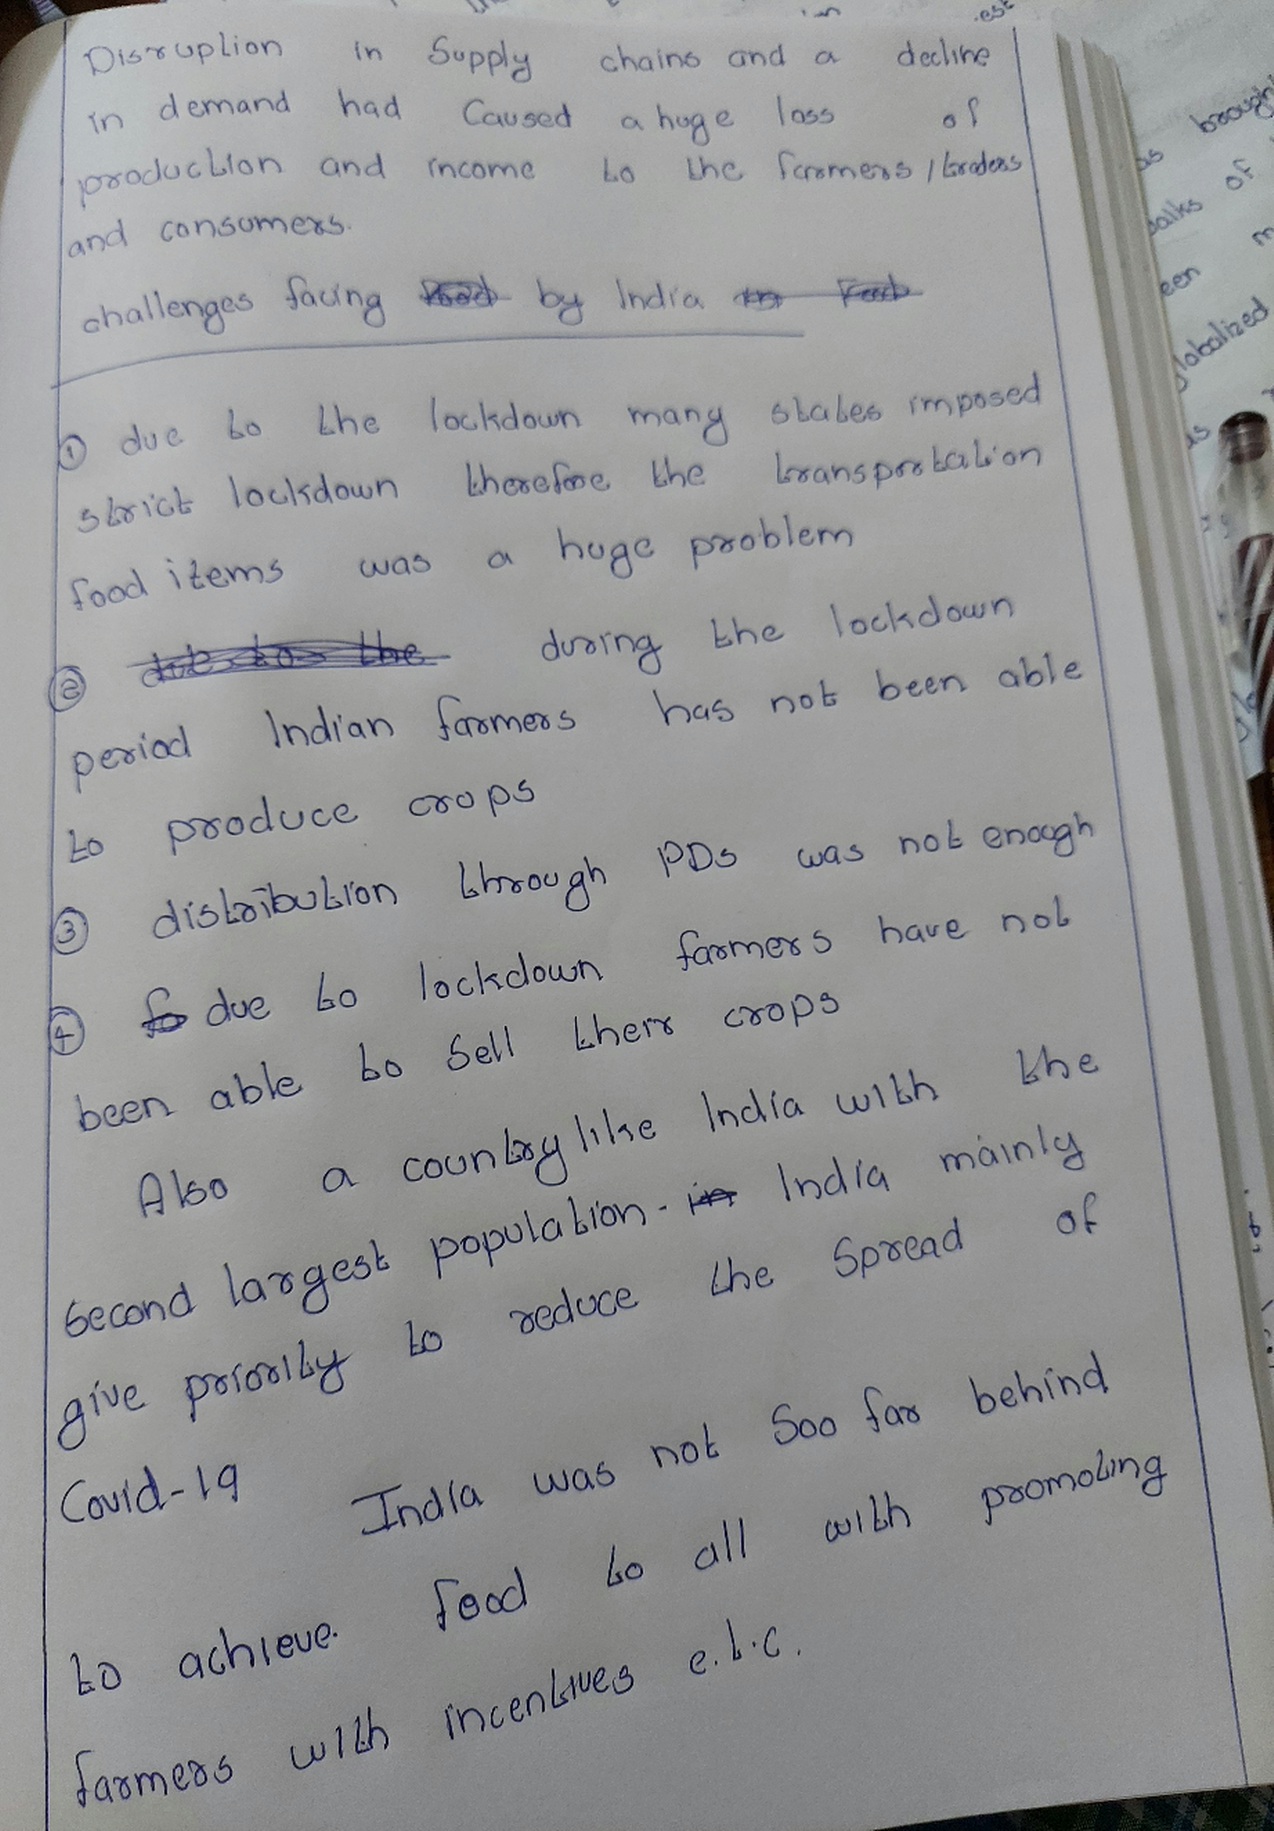 Disruption in Supply chains and a decline
in demand had Caused a huge loss of
production and income to the farmers / traders
and consumers.
challenges facing by India
① due to the lockdown many states imposed
strict lockdown therefore the transportation
food items was a huge problem
② during the lockdown
period Indian farmers has not been able
to produce crops
③ distribution through PDS was not enough
④ due to lockdown farmers have not
been able to Sell their crops
Also a country like India with the
Second largest population. India mainly
give priority to reduce the Spread of
Covid-19
India was not Soo far behind
to achieve. food to all with promoting
farmers with incentives e.t.c.
brought
as
walks of
een m
globalized
is